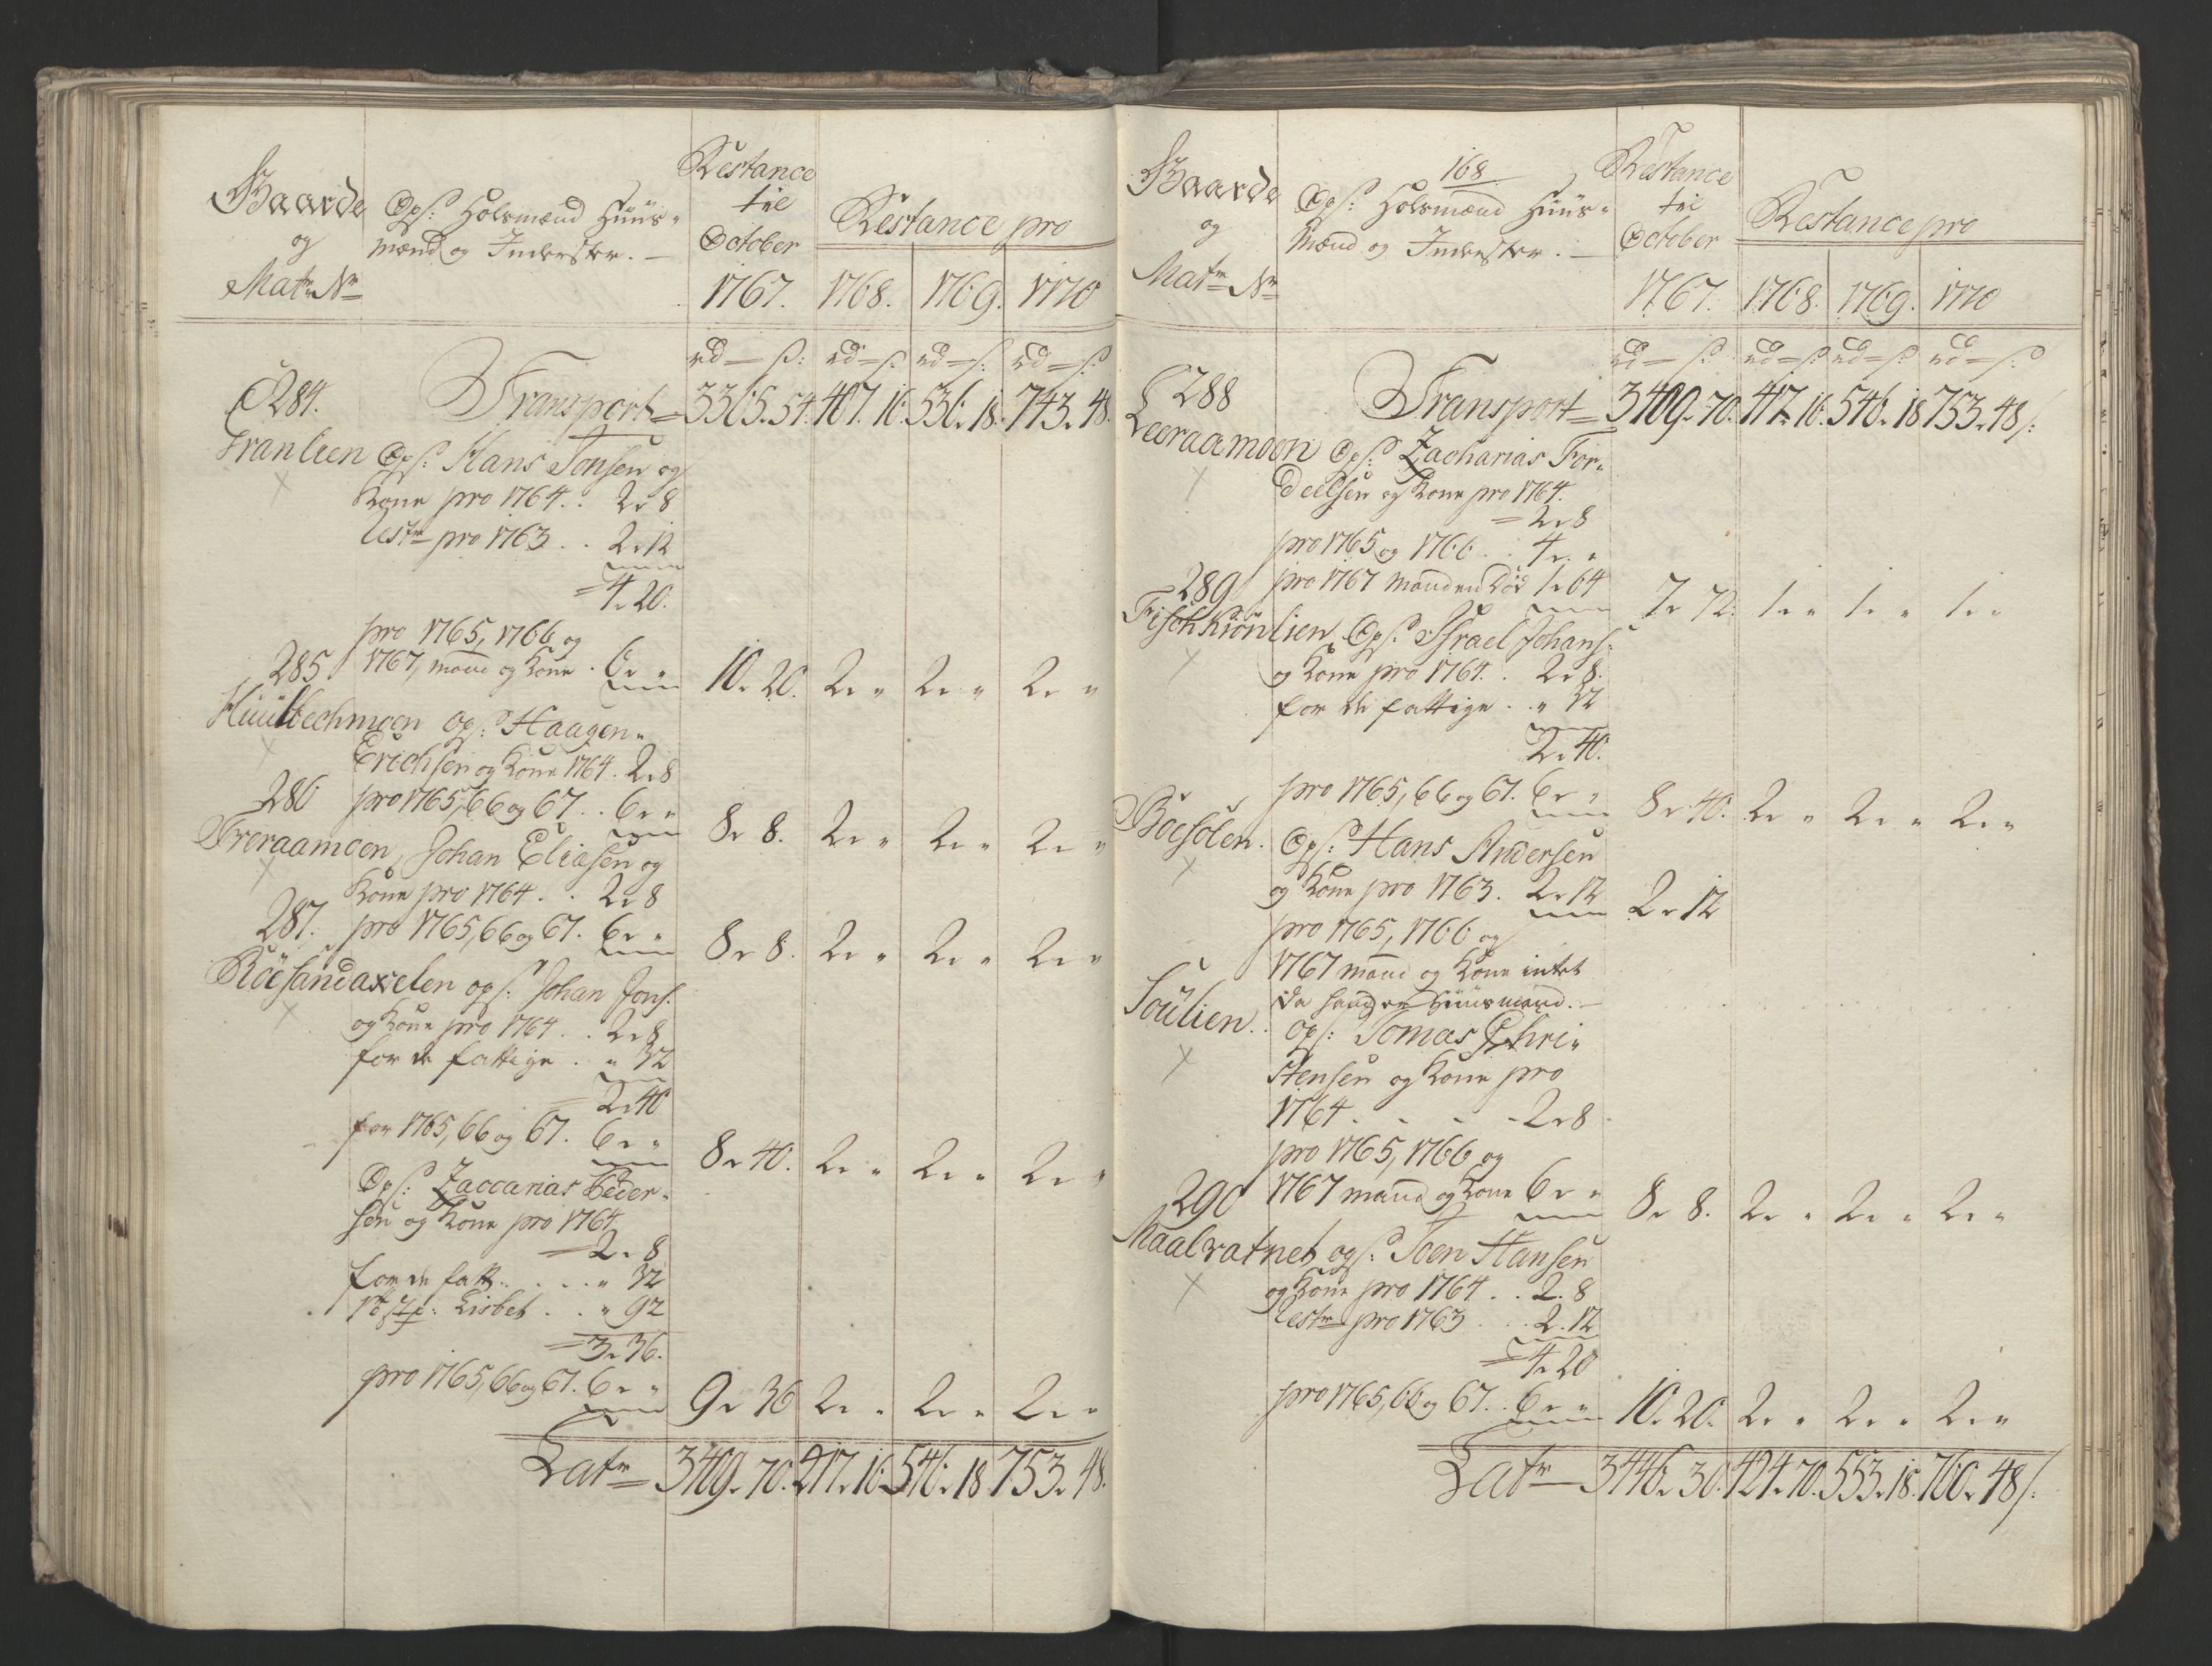 Gaarde
og
Matr Nr
Ops: Holsmænd Huus-
mænd og Inderster. —
Restance
til
October
1767.
Restance pro
1768. 1769. 1770
rd — s: rd — s: rd — s: rd — s:
284. Transport 3365. 54. 407. 16. 536. 18. 743. 48.
Franlien Ops: Hans Jonsen og
Kone pro 1764 . . 2„ 8
Restr pro 1763 . . 2„ 12
4„ 20.
pro 1765, 1766 og
285 1767, mand og Kone . 6„ „ 10„ 20. 2„ „ 2„ „ 2„ „
Huulbechmoen Ops: Haagen
Erichsen og Kone 1764 . 2„ 8
286 pro 1765, 66 og 67 . . 6„ „ 8„ 8. 2„ „ 2„ „ 2„ „
Treraamoen, Johan Eliasen og
Kone pro 1764 . . 2„ 8
287. pro 1765, 66 og 67. 6„ „ 8„ 8. 2„ „ 2„ „ 2„ „
Röesandaxelen ops: Johan Jons:
og Kone pro 1764 . . 2„ 8
for de fattige . „ 32
2„ 40
for 1765, 66 og 67. 6„ „ 8„ 40. 2„ „ 2„ „ 2„ „
Ops: Zaccarias Peder-
sen og Kone pro 1764
2„ 8
for de fatt: . . . „ 32
Lisbet . . „ 92
3„ 36.
pro 1765, 66 og 67. 6„ „ 9„ 36 2„ „ 2„ „ 2„ „
Latr 3409„ 70. 417„ 16. 546„ 18 753„ 48.
168
Gaarde
og
Matr Nr
Ops: Holsmænd Huus-
Mænd og Inderster. —
Restance
til
October
1767.
Restance pro
1768. 1769. 1770
rd — s: rd — s rd — s rd — s:
288 Transport 3409„ 70. 417„ 16. 546„ 18 753„ 48 s:
Leeraamoen Ops: Zacharias For-
deelsen og Kone pro 1764.
2„ 8
pro 1765 og 1766 . . 4„ „
289 pro 1767 manden död 1„ 64 7„ 72. 1„ „ 1„ „ 1„ „
Fischkiönlien Ops: Israel Johans:
og Kone pro 1764. . 2„ 8.
for de fattige . . „ 32
2„ 40.
pro 1765, 66 og 67. 6„ „ 8„ 40. 2„ „ 2„ „ 2„ „
Böesölen. Ops: Hans Andersen
og Kone pro 1763. 2„ 12 2„ 12
pro 1765, 1766 og
1767 mand og Kone intet
da hand er Huusmand. —
Soulien. ops: Tomas Chri-
stensen og Kone pro
1764 . . . . 2„ 8
pro 1765, 1766 og
290 1767 mand og Kone 6„ „ 8„ 8. 2„ „ 2„ „ 2„ „
Maalvatnet ops: Joen Hansen
og Kone pro 1764 . . 2. 8
Restr pro 1763 . . . 2. 12
4„ 20
pro 1765, 66 og 67 . . 6„ „ 10„ 20. 2„ „ 2„ „ 2„ „
Latr 3446„ 30. 424„ 70. 553„ 18. 760„ 48 s: